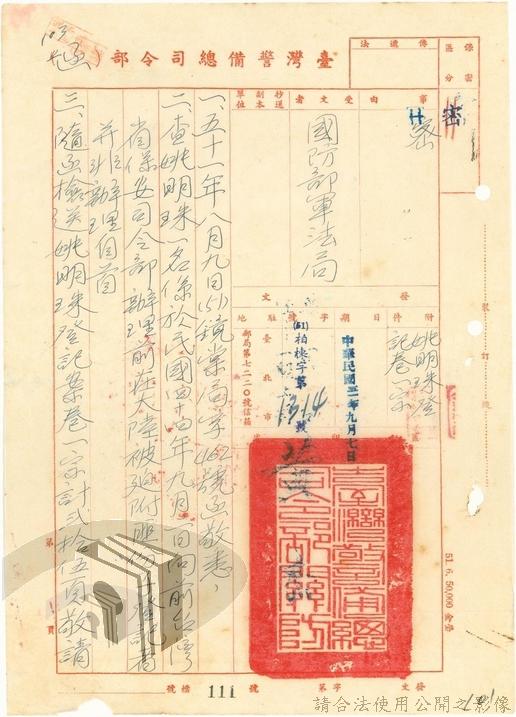 臺灣警備總司令部
保密區分
傳遞法
密
事由
密
受文者
國防部軍法局
抄送副本單位
發文
附件
姚明珠登記卷一宗
日期
中華民國五一年九月七日
字號
(51)柏桃字第
1314號
駐地
臺北市
郵局第七二二〇號信箱
一、五十一年八月九日(51)鏡業局字162號函敬悉,
二、查姚明珠一名係於民國四十四年九月
日向前台灣
省保安司令部辦理前在大陸被迫附匪份子登記
三、隨函檢送姚明珠登記案卷一宗計弍拾伍頁敬請
裝訂線
51. 6. 50,000
第
頁
發文
字第
111
號
檔號
請合法使用公開之影像